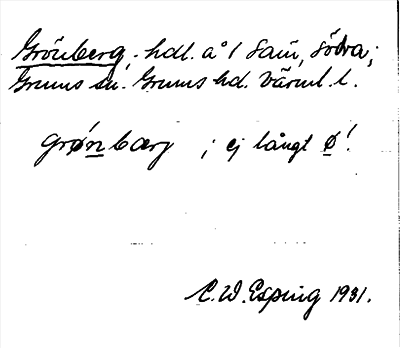 Grönberg, hdl. å 1 Sam, Södra;
Grums sn. Grums hd. Värml. l.
grǿn bærg ; ej långt ø!
C.W. Esping 1931.